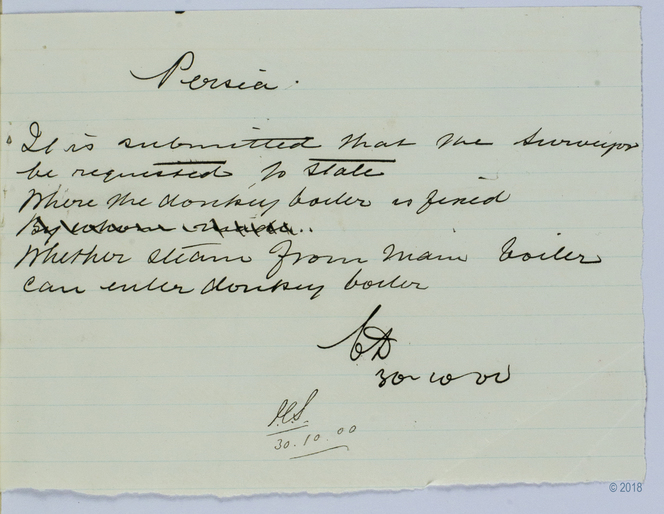 Persia.
It is submitted that the Surveyor
be requested to state
Where the donkey boiler is fixed
By whom made..
Whether steam from main boiler
can enter donkey boiler
30-10-00
30.10.00
© 2018